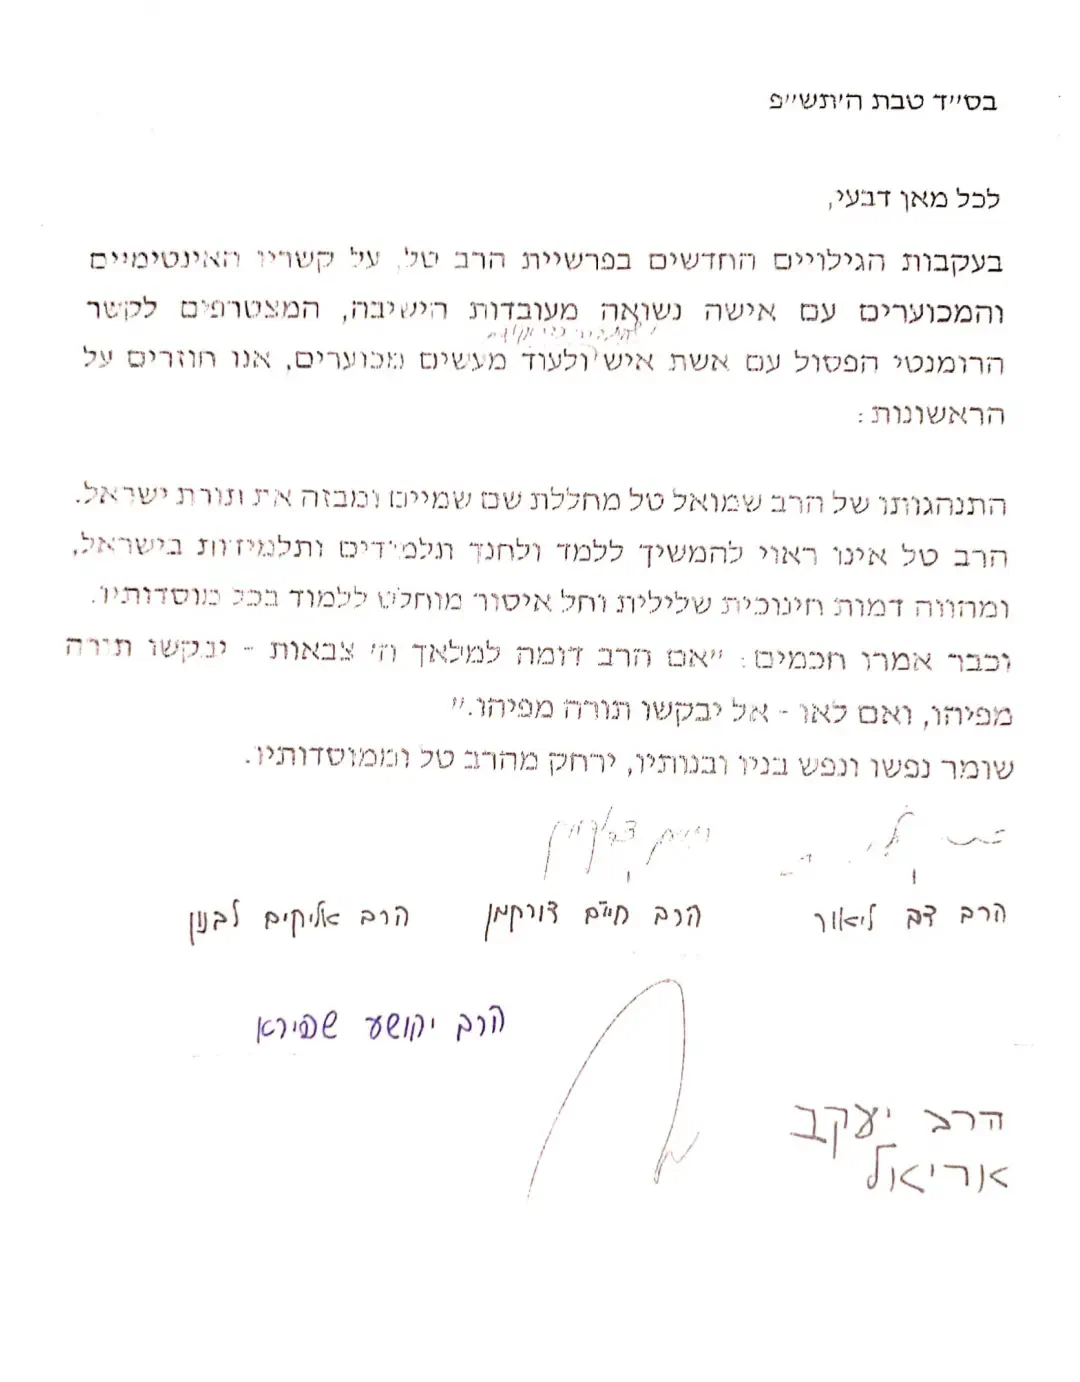 בס״ד טבת ה׳תש״פ
לכל מאן דבעי,
בעקבות הגילויים החדשים בפרשיית הרב טל, על קשריו האינטימיים
והמכוערים עם אישה נשואה מעובדות הישיבה, המצטרפים לקשר
הרומנטי הפסול עם אשת איש ולעוד מעשים מכוערים, אנו חוזרים על
הראשונות:
התנהגותו של הרב שמואל טל מחללת שם שמיים ומבזה את תורת ישראל.
הרב טל אינו ראוי להמשיך ללמד ולחנך תלמידים ותלמידות בישראל,
ומהווה דמות חינוכית שלילית וחל איסור מוחלט ללמוד בכל מוסדותיו.
וכבר אמרו חכמים: ״אם הרב דומה למלאך ה׳ צבאות - יבקשו תורה
מפיהו, ואם לאו - אל יבקשו תורה מפיהו.״
שומר נפשו ונפש בניו ובנותיו, ירחק מהרב טל וממוסדותיו.
חיים דרוקמן
הרב דב ליאור הרב חיים דורקמן הרב אליקים לבנון
הרב יהושע שפירא
הרב יעקב
אריאל